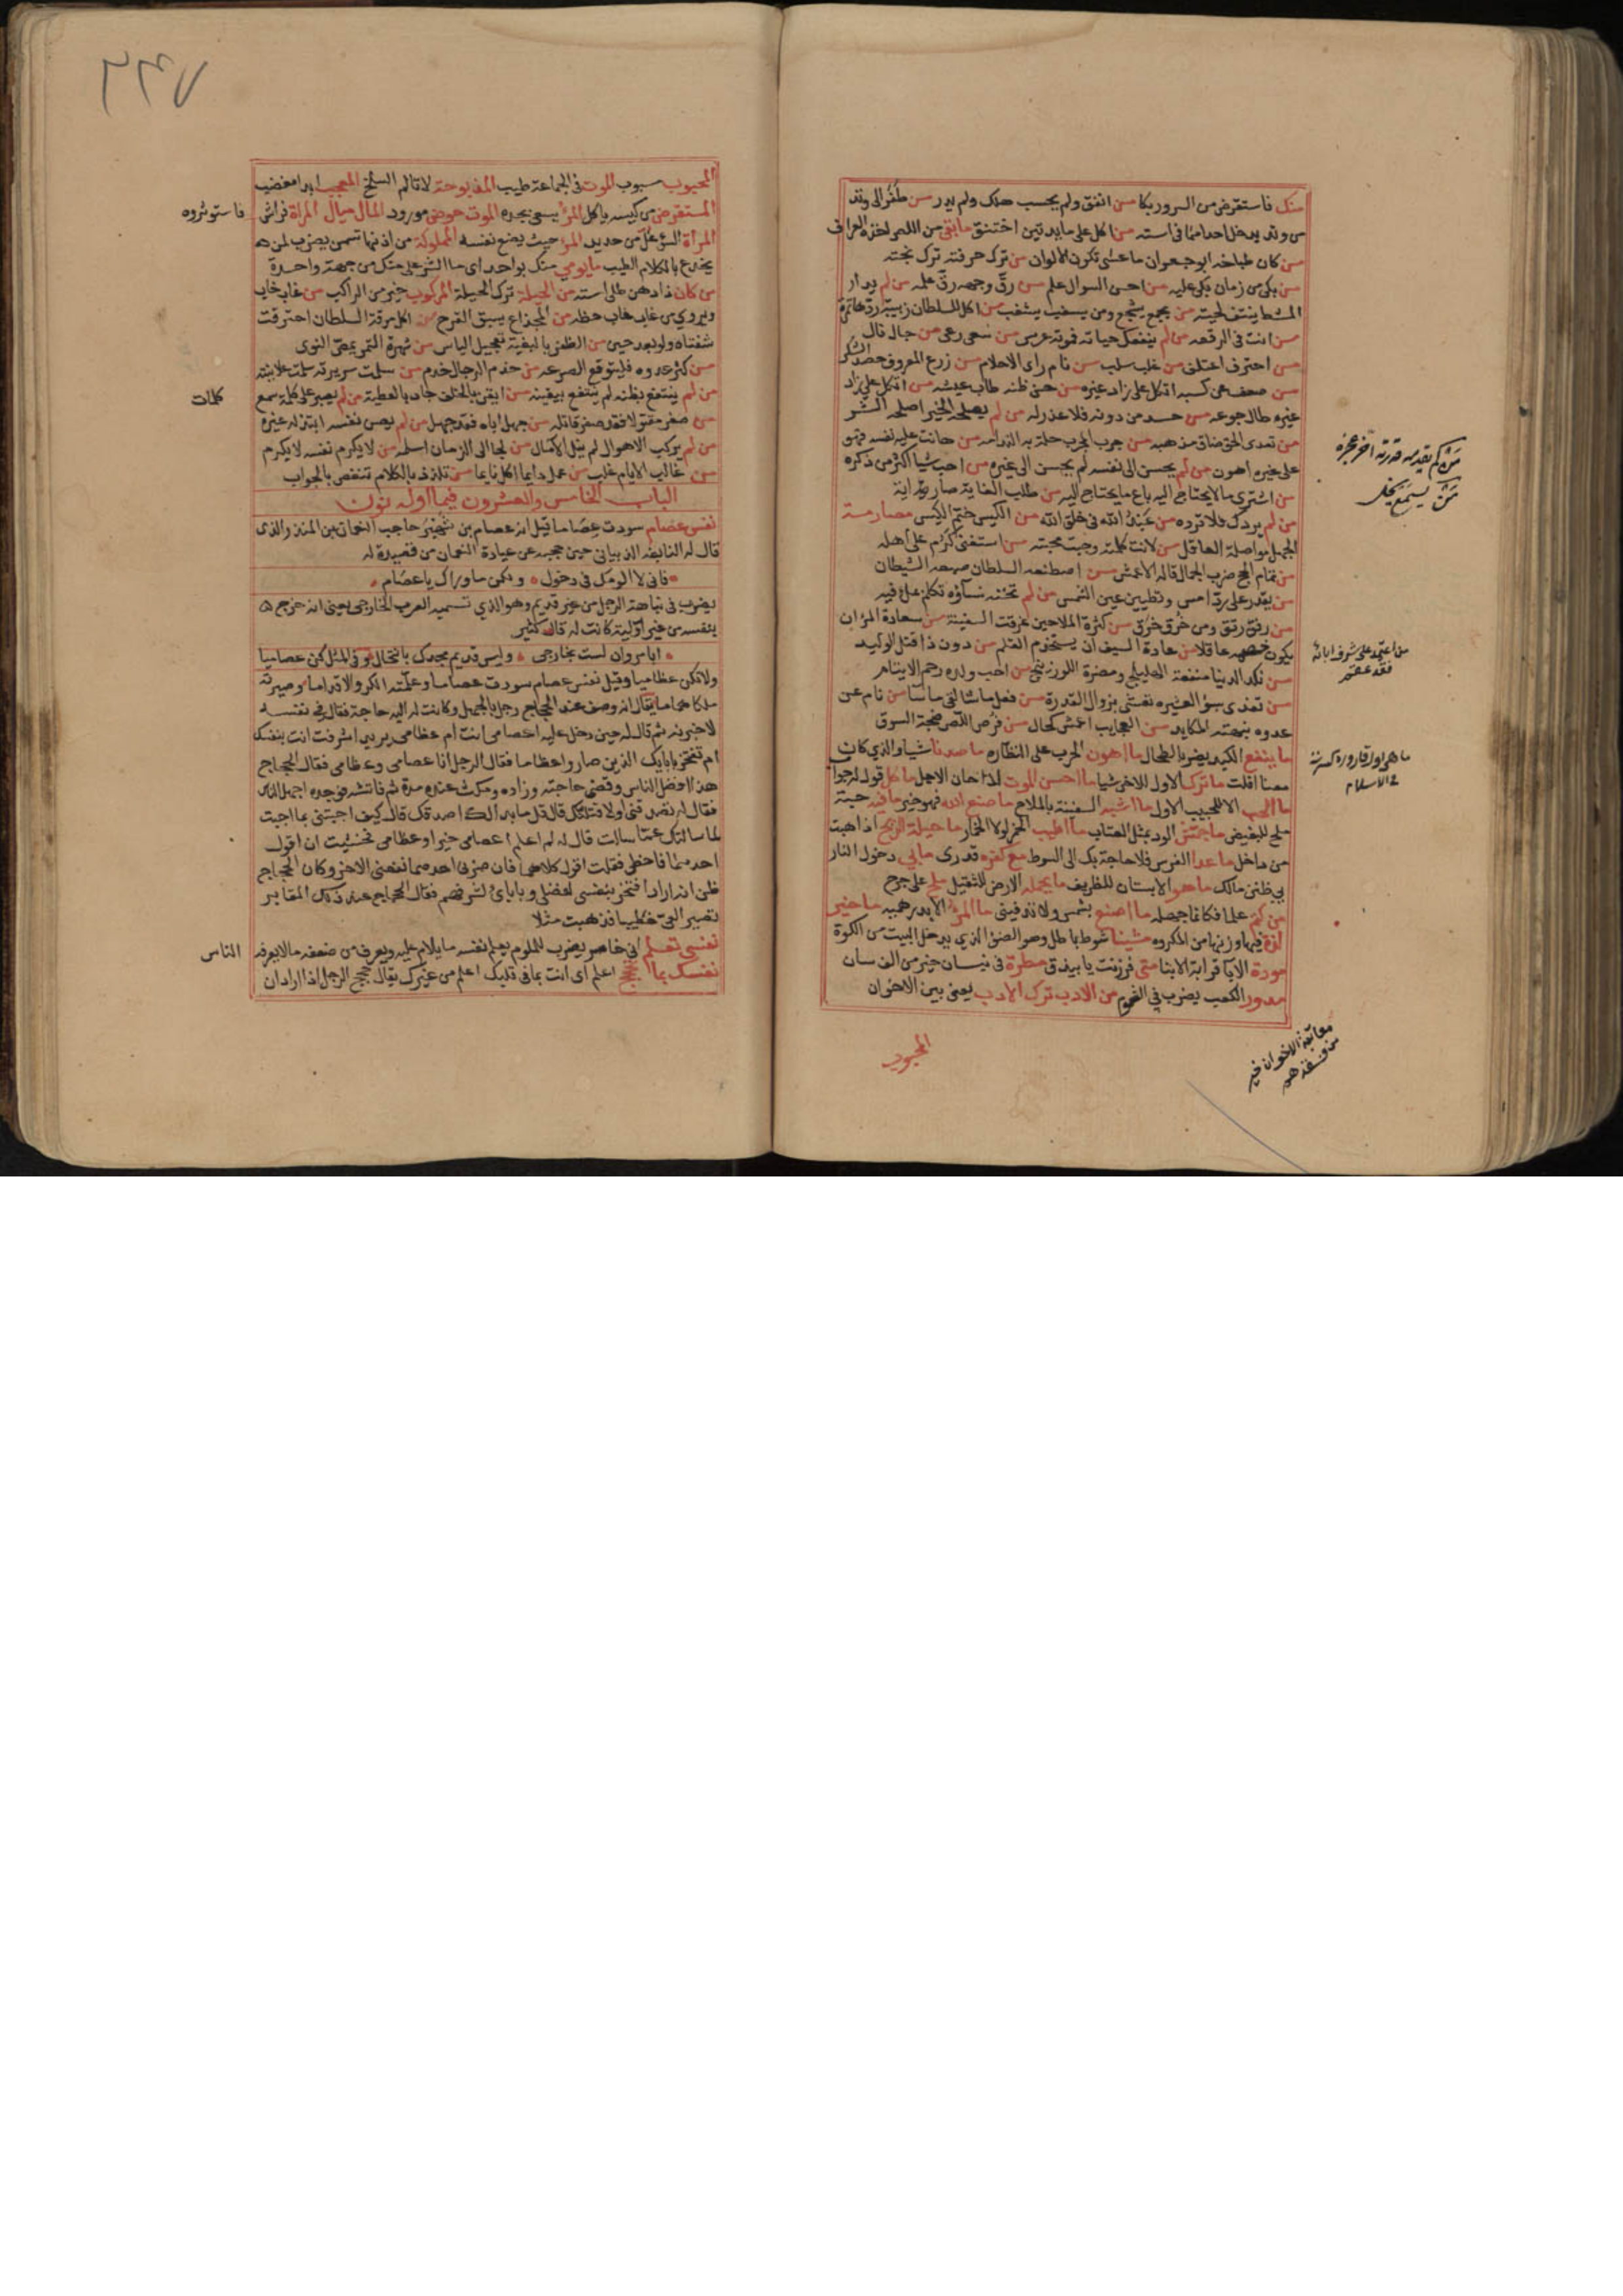 منك فاستقرض من السرور بكا من انفق ولم يحسب هلك ولم يدر من طفر الى وتد
من وتد يدخل احدهما في استه من اكل على مايدتين اختنق ما بقي من اللص اخذه العراف
من كان طباخه ابو جعران ما عسى تكون الالوان من ترك حرفته ترك بخته
من بكى من زمان بكى عليه من احسن السوال علم من رق وجهه رق علمه من لم يدار
المشط ينتف لحيته من اكل للسلطان زبيبة ردها تمرة
من انت في الرقعه من لم ينفعك حياته فموته عرس من سعى رعى من جال نال
من احترف اعتلف من غلب سلب من نام راى الاحلام من زرع المعروف حصد الشكر
من ضعف عن كسبه اتكل على زاد غيره من حسن ظنه طاب عيشه من اتكل على زاد
غيره طال جوعه من حسد من دونه فلا عذر له من لم يصلحه الخير اصلحه الشر
من تعدى الحق ضاق مذهبه من جرب المجرب حلت به الندامه من هانت عليه نفسه فهو
على غيره اهون من لم يحسن الى نفسه لم يحسن الى غيره من احب شيا اكثر من ذكره
من اشترى ما لا يحتاج اليه باع ما يحتاج اليه من طلب الغاية صار
من لم يردك فلا ترده من عبد الله في خلق الله من الكيس ختم الكيس مصارمة
الجهل مواصلة العاقل من لانت كلمته وجبت محبته من استغنى كرم على اهله
من تمام الحج ضرب الجمال قاله الاعمش من اصطنعه السلطان الشيطان
من يقدر على رد امس وتطيين عين الشمس من لم تخنه نساؤه تكلم بملء فيه
من رفق رتق ومن خرق خرق من كثرة الملاحين غرقت السفينة من سعادة المر ان
يكون خصمه عاقلا من عادة السيف ان يستخدم القلم من دون ذا قتل الوليد
من نكد الدنيا منفعة الهليلج ومضرة اللوزينج من احب ولده رحم الايتام
من تعدى بسوء السيره نفسه بزوال القدرة من فعل ما شا لقي ما سا من نام عن
عدوه نبهته المكايد من العجايب اعمش كحال من فرص اللص ضجة السوق
ما ينفع الكبد يضر بالطحال ما اهون الحرب على النظاره ما صدنا شيا والذي كان
معنا افلت ما ترك الاول للاخر شيا ما احسن الموت اذا حان الاجل ما كل قول له جواب
ما الحب الا للحبيب الاول ما اشبه السفينة بالملاح ما صنع الله فهو خير
ملح للبغيض الود بمثل العتاب ما اطيب الخمر لولا الخمار ما حيلة الريح اذا هبت
من داخل ما عدا الفرس فلا حاجة بك الى السوط مع كفره قدري ما بي دخول النار
بي طنز مالك ما هو الا بستان للظريف ما يحمله الارض للثقيل ملح على جرح
من كتم علما فكانما جهله ما اصنع بشمس لا تدفيني ما المرء الا بدرهميه ما خير
مشينا شوط باطل وهو الضوء الذي يدخل البيت من الكوة
مودة الابا قرابة الابنا متى فرزنت يا بيدق مطرة في نيسان خير من الف سان
مدور الكعب يضرب في الشوم من الادب ترك الادب يعني بين الاخوان
من اعتمد على شرف ابائه
فقد عقهم
ما هي اول قارورة كسرت
في الاسلام
معاتبة الاخوان خير
من فقدهم
المحبوب
٢٣٧
المحبوب مسبوب الموت في الجماعة طيب المذبوحة لا تالم السلخ المعجب ابدا مغضب
المستقرض من كيسه ياكل المرء يسعى بجده الموت حوض مورود المال ميال المراة فراش
فاستوثروه
المراة السوء غل من حديد المرء حيث يضع نفسه المملوكة من اذنها تسمن يضرب لمن
يخدع بالكلام الطيب ما يومي منك بواحد اي ما الشر علي منك من جهة واحدة
من كان ذا دهن طلى استه من الحيلة ترك الحيلة المركوب خير من الراكب من غاب خاب
ويروى من غاب خاب حظه من المجذاع يسبق القرح من اكل مرقة السلطان احترقت
شفتاه ولو بعد حين من الظفر بالبغية تعجيل الياس من شهوة التمر يمص النوى
من كثر عدوه فليتوقع الصرعه من خدم الرجال خدم من سلمت سريرته سلمت علانيته
من لم ينتفع بظنه لم ينتفع بيقينه من ايقن بالخلف جاد بالعطية من لم يصبر على كلمة سمع
كلمات
من صغر مقتولا فقد صغر قاتله من جهل اباه فقد جهل من لم يصن نفسه ابتذله غيره
من لم يركب الاهوال لم ينل الامال من لجا الى الزمان اسلمه من لا يكرم نفسه لا يكرم
من غالب الايام غلب من عمل دايما اكل نايما من تلذذ بالكلام تنغص بالجواب
الباب الخامس والعشرون فيما اوله نون
نفس عصام سودت عصاما قيل انه عصام بن شهبر حاجب النعمان بن المنذر الذي
قال له النابغه الذبياني حين حجبه عن عيادة النعمان من قصيدة له
فاني لا الومك في دخول ولكن ما وراك يا عصام
يضرب في نباهة الرجل من غير قديم وهو الذي تسميه العرب الخارجي يعني انه خرج
بنفسه من غير اولية كانت له قال كثير
ابا مروان لست بخارجي وليس قديم مجدك بانتحال وفي المثل كن عصاميا
ولا تكن عظاميا وقيل نفس عصام سودت عصاما وعلمته الكر والاقداما وصيرته
ملكا هماما يقال انه وصف عند الحجاج رجل بالجهل وكانت له اليه حاجة فقال في نفسه
لاختبرنه ثم قال له حين دخل عليه اعصامي انت ام عظامي يريد اشرفت انت بنفسك
ام تفتخر بابايك الذين صاروا عظاما فقال الرجل انا عصامي وعظامي فقال الحجاج
هذا افضل الناس وقضى حاجته وزاده ومكث عنده مدة ثم فاتشه فوجده اجهل الناس
فقال له تصدقني اولا قتلتك قال قل ما بدا لك اصدقك قال كيف اجبتني بما اجبت
لما سالتك عما سالت قال له لم اعلم اعصامي خير او عظامي فخشيت ان اقول
احدهما فاخطي فقلت اقول كلاهما فان ضرني احدهما نفعني الاخر وكان الحجاج
ظن انه اراد افتخر بنفسي لفضلي وبابائي لشرفهم فقال الحجاج عند ذلك المقادير
تصير العي خطيبا فذهبت مثلا
نفسي تعلم اني خاسر يضرب للملوم يعلم نفسه ما يلام عليه ويعرف من ضعفه ما لا يعرفه
الناس
نفسك بما تحجحج اعلم اي انت بما في قلبك اعلم من غيرك يقال حجحج الرجل اذا اراد ان